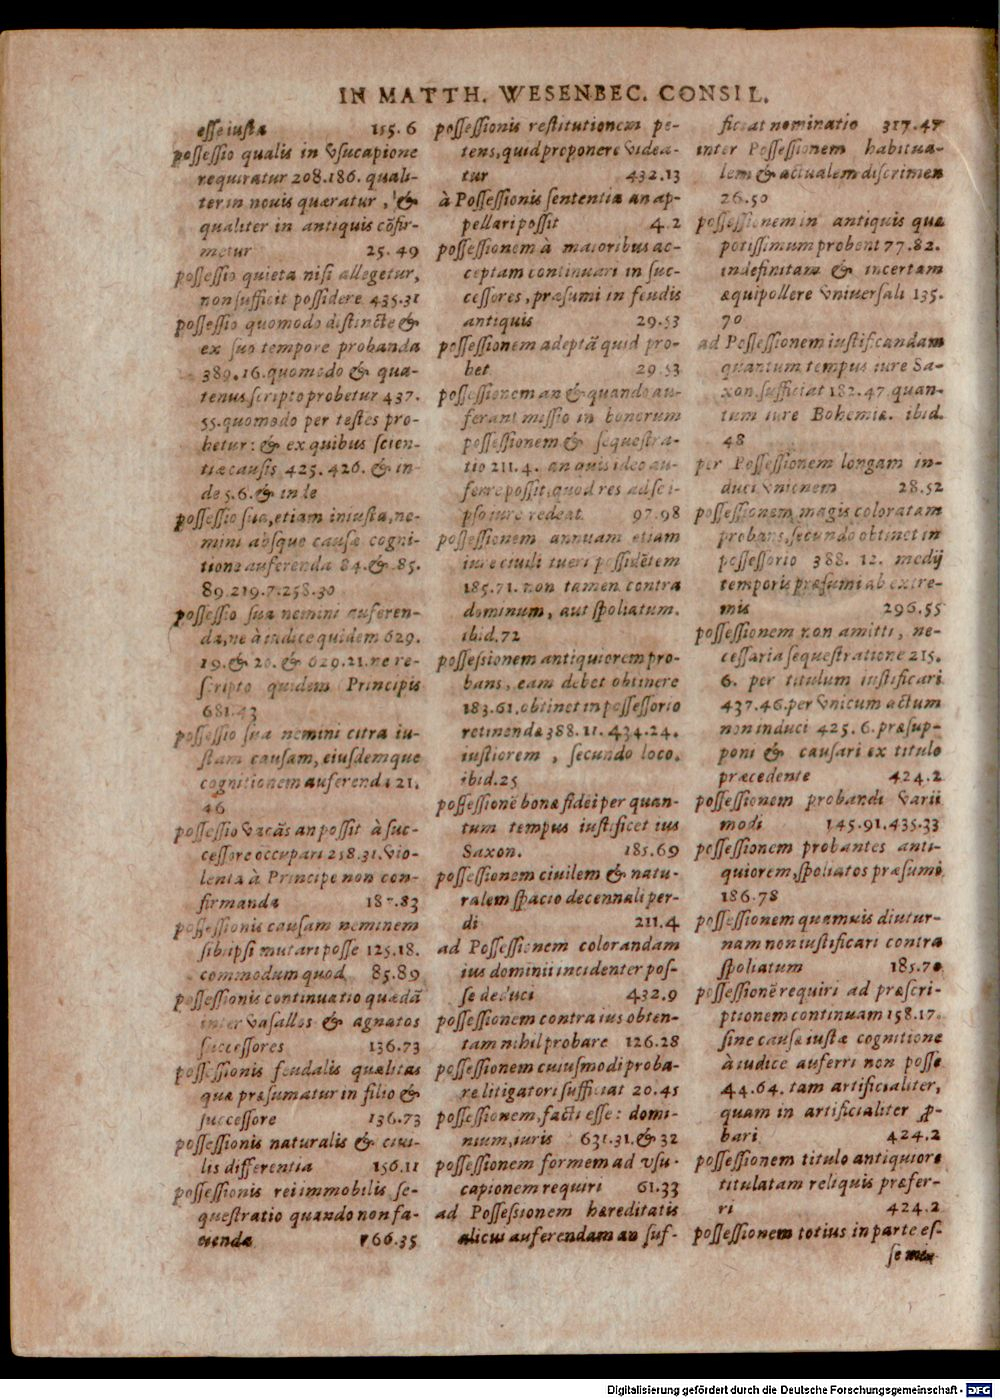 IN MATTH. WESENBEC. CONSIL.
esse iustæ 155.6
possessio qualis in vsucapione
requiratur 208.186. quali-
ter in nouis quæratur, &
qualiter in antiquis cõfir-
metur 25.49
possessio quieta nisi allegetur,
non sufficit possidere 435.31
possessio quomodo distincte &
ex suo tempore probanda
389.16. quomodo & qua-
tenus scripto probetur 437.
55. quomodo per testes pro-
betur: & ex quibus scien-
tiæ causis 425. 426. & in-
de 5.6. & in le
possessio sua, etiam iniusta, ne-
mini absque causæ cogni-
tione auferenda 84. & 85.
89.219.7.258.30
possessio sua nemini auferen-
da, ne à iudice quidem 629.
19. & 20. & 629.21. ne re-
scripto quidem Principis
681.43
possessio sua nemini citra iu-
stam causam, eiusdemque
cognitionem auferenda 21.
46
possessio vacãs an possit à suc-
cessore occupari 258.31. vio-
lenta à Principe non con-
firmanda 187.83
possessionis causam neminem
sibi ipsi mutari posse 125.18.
commodum quod 85.89
possessionis continuatio quædã
inter vasallos & agnatos
successores 136.73
possessionis feudalis qualitas
quæ præsumatur in filio &
successore 136.73
possessionis naturalis & ciui-
lis differentia 156.11
possessionis rei immobilis se-
questratio quando non fa-
cienda 766.35
possessionis restitutionem pe-
tens, quid proponere videa-
tur 432.13
à Possessionis sententia an ap-
pellari possit 4.2
possessionem à maioribus ac-
ceptam continuari in suc-
cessores, præsumi in feudis
antiquis 29.53
possessionem adeptã quid pro-
bet 29.53
possessionem an & quando au-
ferant missio in bonorum
possessionem & sequestra-
tio 211.4. an quis ideo au-
ferre possit, quod res ad se i-
pso iure redeat 97.98
possessionem annuam etiam
iure ciuili tueri possidẽtem
185.71. non tamen contra
dominum, aut spoliatum.
ibid.72
possessionem antiquiorem pro-
bans, eam debet obtinere
183.61. obtinet in possessorio
retinendæ 388.11. 434.24.
iustiorem, secundo loco.
ibid.25
possessionẽ bonæ fidei per quan-
tum tempus iustificet ius
Saxon. 185.69
possessionem ciuilem & natu-
ralem spacio decennali per-
di 211.4
ad Possessionem colorandam
ius dominii incidenter pos-
se deduci 432.9
possessionem contra ius obten-
tam nihil probare 126.28
possessionem cuiusmodi proba-
re litigatori sufficiat 20.45
possessionem, facti esse: domi-
nium, iuris 631.31. & 32
possessionem formem ad vsu-
capionem requiri 61.33
ad Possessionem hæreditatis
alicui auferendam an suf-
ficiat nominatio 317.47
inter Possessionem habitua-
lem & actualem discrimen
26.50
possessionem in antiquis quæ
potissimum probent 77.82.
indefinitam & incertam
æquipollere vniuersali 135.
70
ad Possessionem iustificandam
quantum tempus iure Sa-
xon. sufficiat 182.47. quan-
tum iure Bohemiæ. ibid.
48
per Possessionem longam in-
duci vnionem 28.52
possessionem magis coloratam
probans, secundo obtinet in
possessorio 388. 12. medij
temporis præsumi ab extre-
mis 296.55
possessionem non amitti, ne-
cessaria sequestratione 215.
6. per titulum iustificari
437.46. per vnicum actum
non induci 425.6. præsup-
poni & causari ex titulo
præcedente 424.2
possessionem probandi varii
modi 145.91.435.33
possessionem probantes anti-
quiorem, spoliatos præsumi
186.78
possessionem quamuis diutur-
nam non iustificari contra
spoliatum 185.70
possessionẽ requiri ad præscri-
ptionem continuam 158.17.
sine causæ iustæ cognitione
à iudice auferri non posse
44.64. tam artificialiter,
quam in artificialiter p-
bari 424.2
possessionem titulo antiquiore
titulatam reliquis præfer-
ri 424.2
possessionem totius in parte es-
se
Digitalisierung gefördert durch die Deutsche Forschungsgemeinschaft - DFG